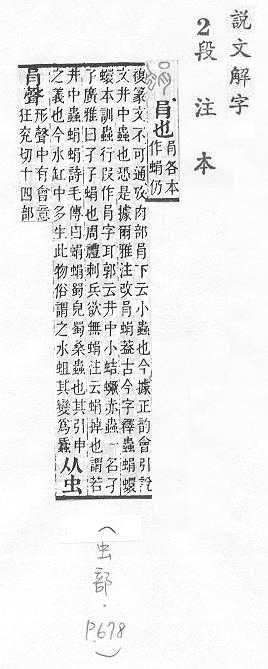 說文解字
2段注本
肙也
肙各本
作蜎仍
復篆文不可通攷肉部肙下云小蟲也今據正韵會引說
文井中蟲也恐是據爾雅注改肙蜎葢古今字釋蟲蜎蠉
蠉本訓蟲行叚作肙字耳郭云井中小蛣蟩赤蟲一名孑
孓廣雅曰孑孓蜎也周禮刺兵欲無蜎注云蜎掉也謂若
井中蟲蜎蜎詩毛傳曰蜎蜎蜀皃蜀桑蟲也其引申
之義也今水缸中多生此物俗謂之水蛆其變爲蟁
从虫
肙聲
形聲中有會意
狂兖切十四部
(虫部·P.678)